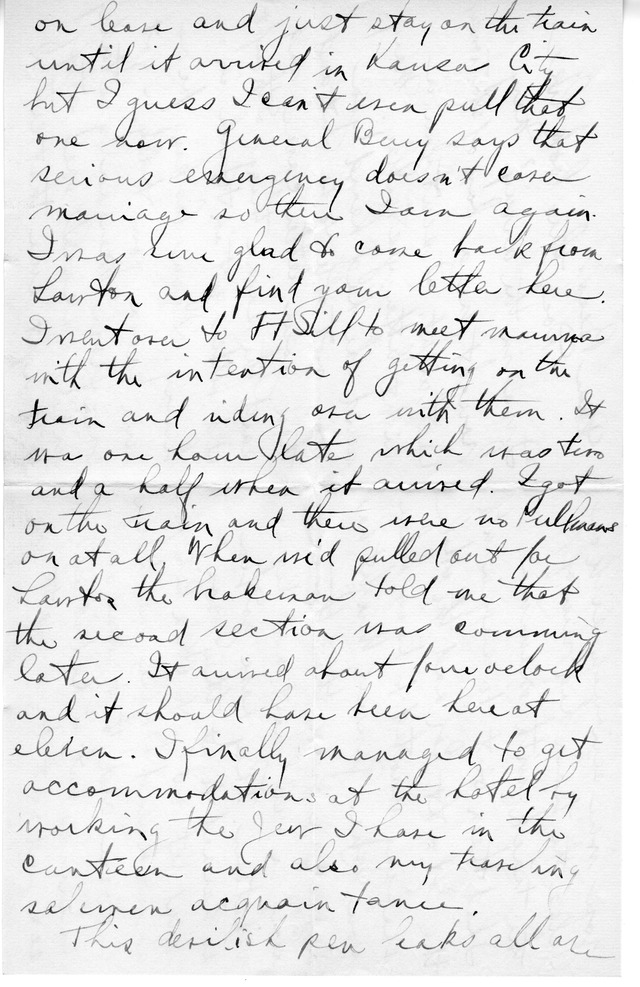 on leave and just stay on the train
until it arrived in Kansas City
but I guess I can't even pull that
one now. General Berry says that
serious emergency doesn't cover
marriage so there I am again.
I was sure glad to come back from
Lawton and find your letter here.
I went over to Ft Sill to meet mamma
with the intention of getting on the
train and riding over with them. It
was one hour late which was two
and a half when it arrived. I got
on the train and there were no Pullmans
on at all. When we'd pulled out for
Lawton the brakeman told me that
the second section was comming
later. It arrived about four oclock
and it should have been here at
eleven. I finally managed to get
accommodations at the hotel by
working the Jew I have in the
canteen and also my traveling
salesmen acquaintance.
This devilish pen leaks all over